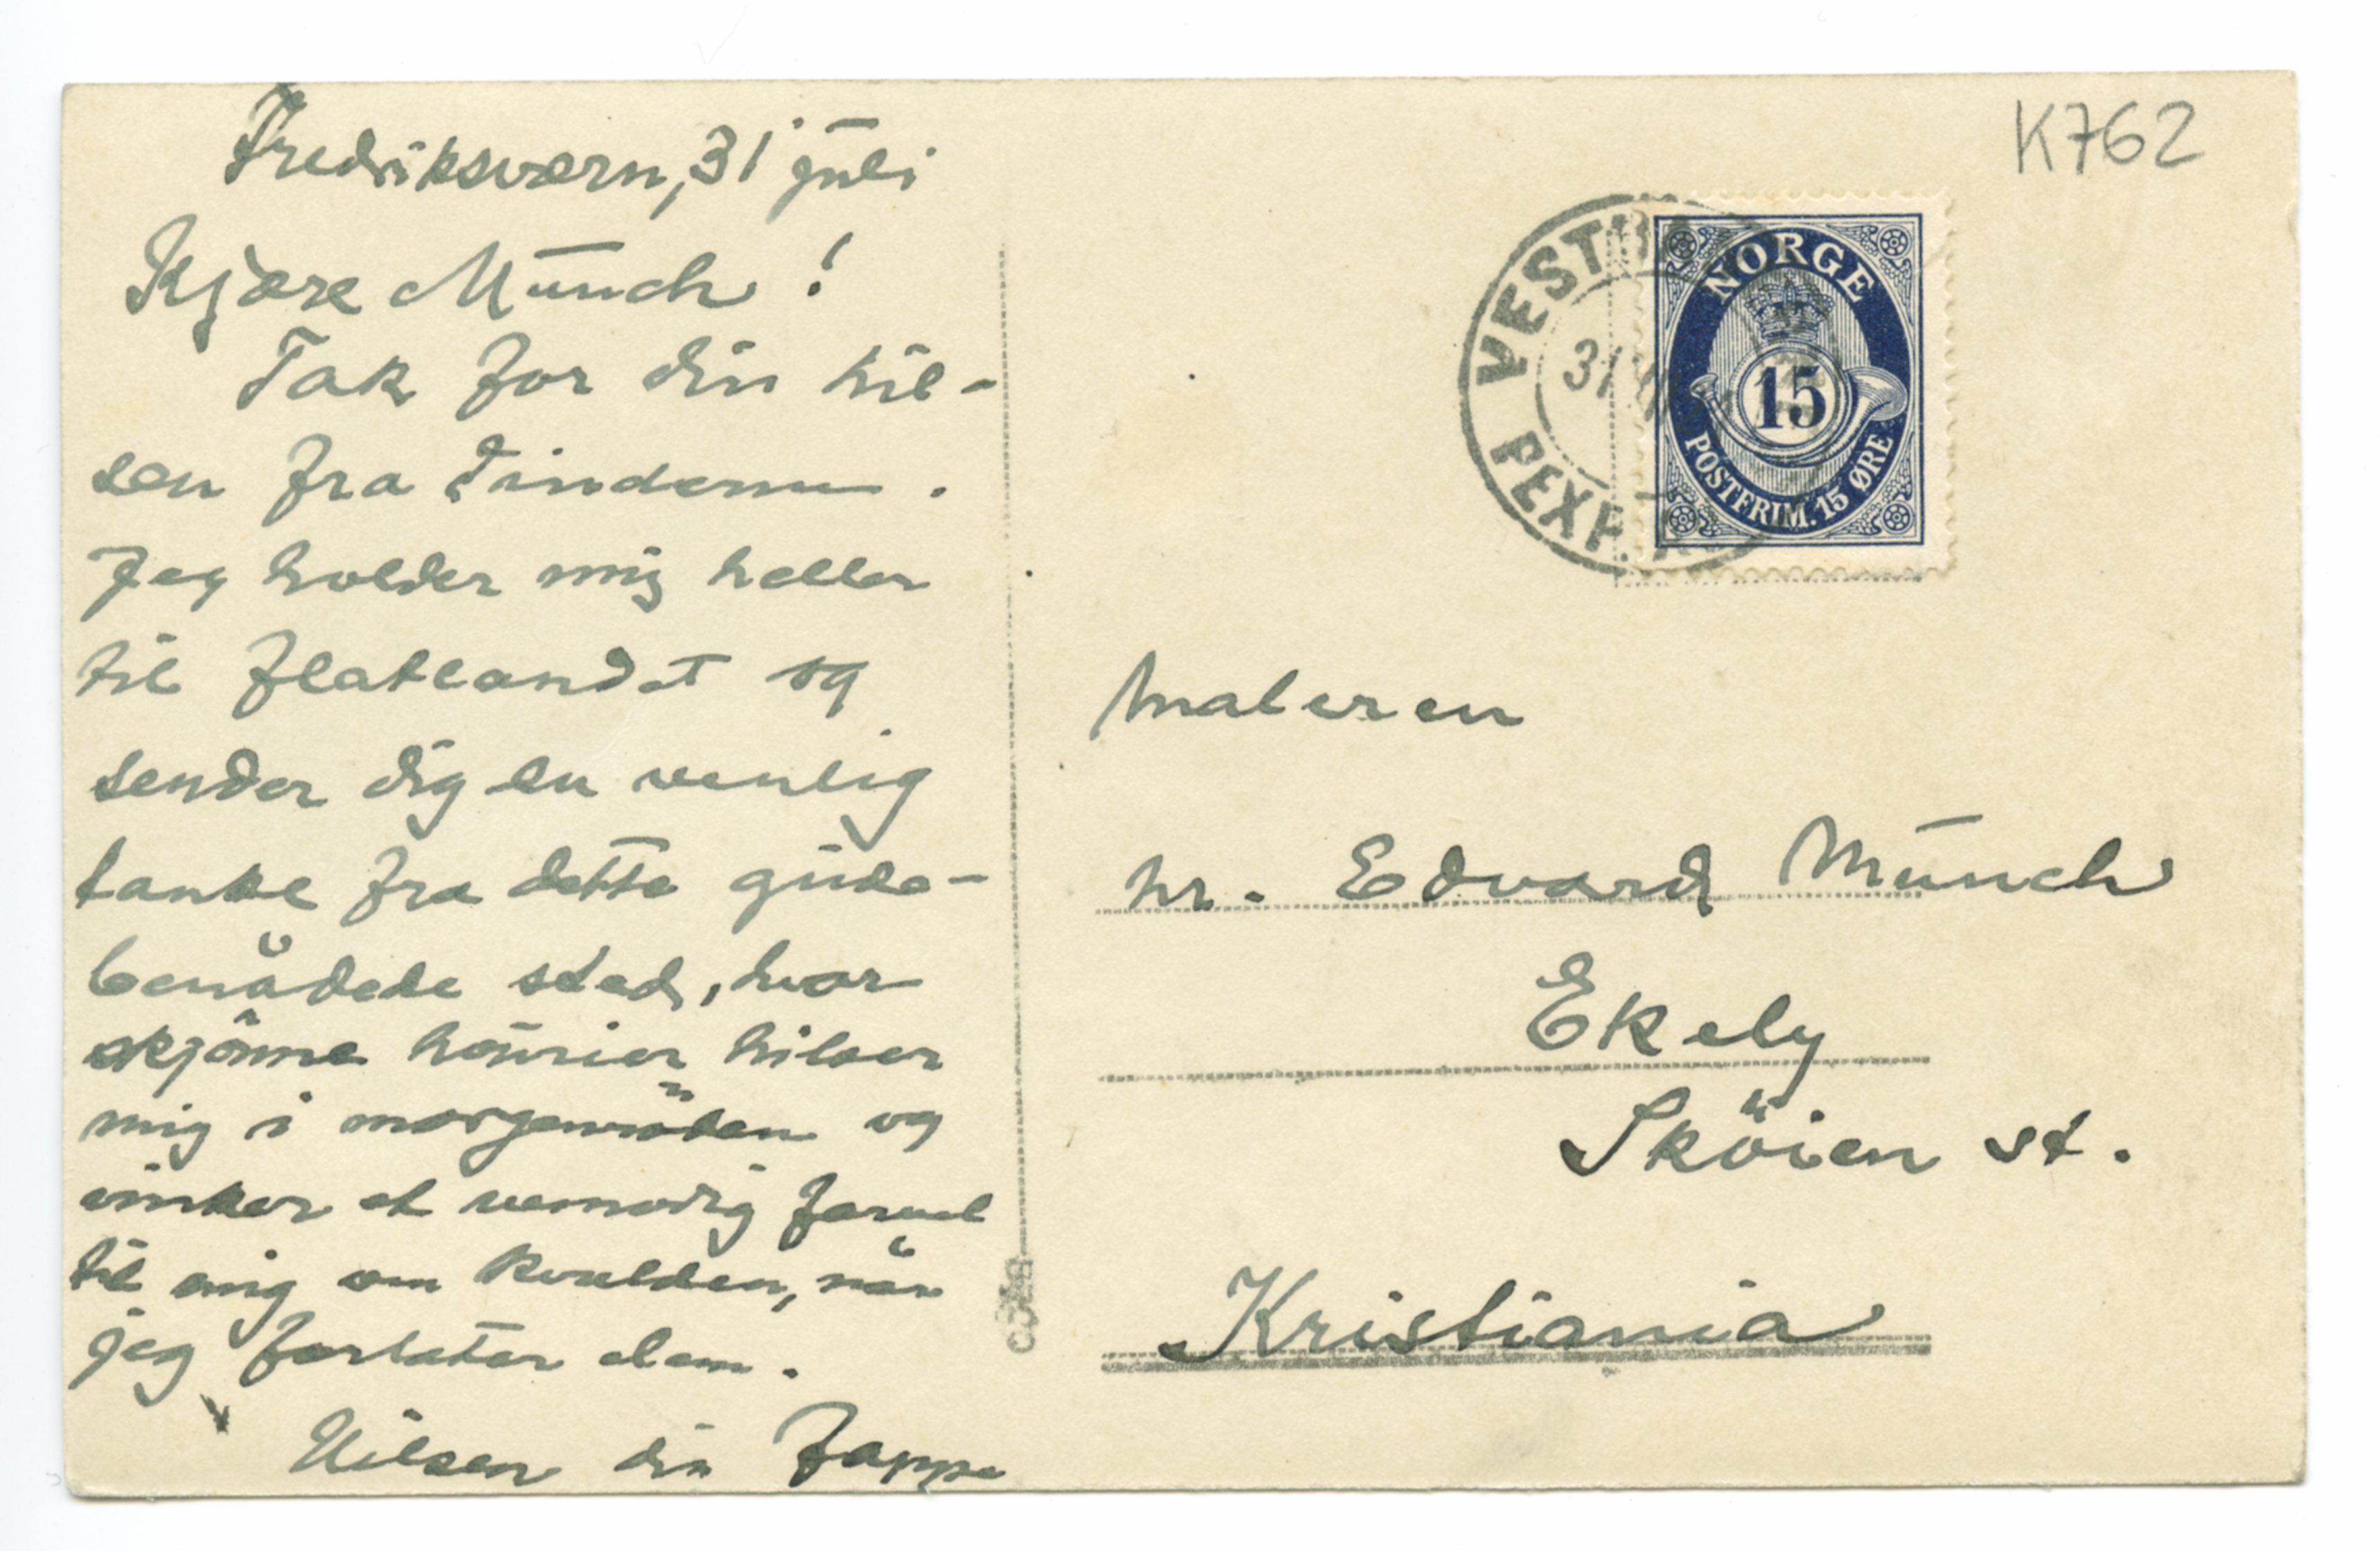 Fredriksværn, 31 juli
Kjære Munch!
Tak for din hil-
sen fra Tinderne.
Jeg holder mig heller
til flatlandet og
sender dig en venlig
tanke fra dette gude-
benådede sted, hvor
skjönne hourier hilser
mig i morgenröden og
vinker et vemodig farvel
til mig om kvelden, når
jeg forlater dem.
Hilsen din Jappe
K762
VEST
PEXP.
31
NORGE
15
POSTFRIM. 15 ØRE
Maleren
hr. Edvard Munch
Ekely
Sköien st.
Kristiania